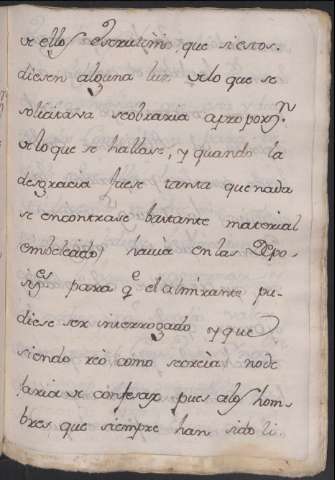 de ellos el escrutinio que si estos
diesen alguna luz de lo que se
solicitava se obraria a proporn.
de lo que se hallase, y quando la
desgracia fuese tanta que nada
se encontrase bastante material
embeleado havia en las Depo-
sis.es para q.e el almirante pu-
diese ser interrogado y que
siendo reo como se creìa no de
jaria de confesar pues a los hom-
bres que siempre han sido li-